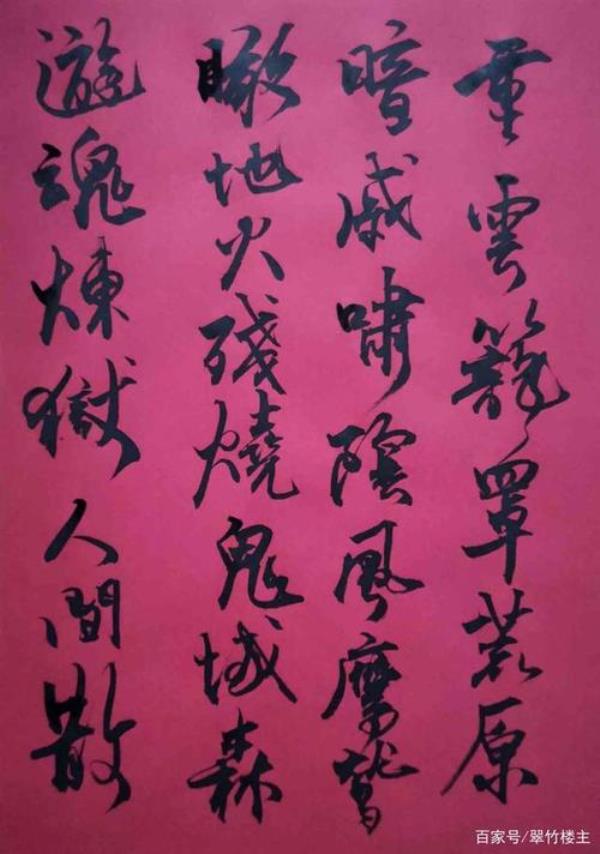 重雲籠罩荒原
暗戚啸陰風摩鷲
瞰地火残燒鬼城森
遊魂煉獄人間散
百家号/翠竹楼主